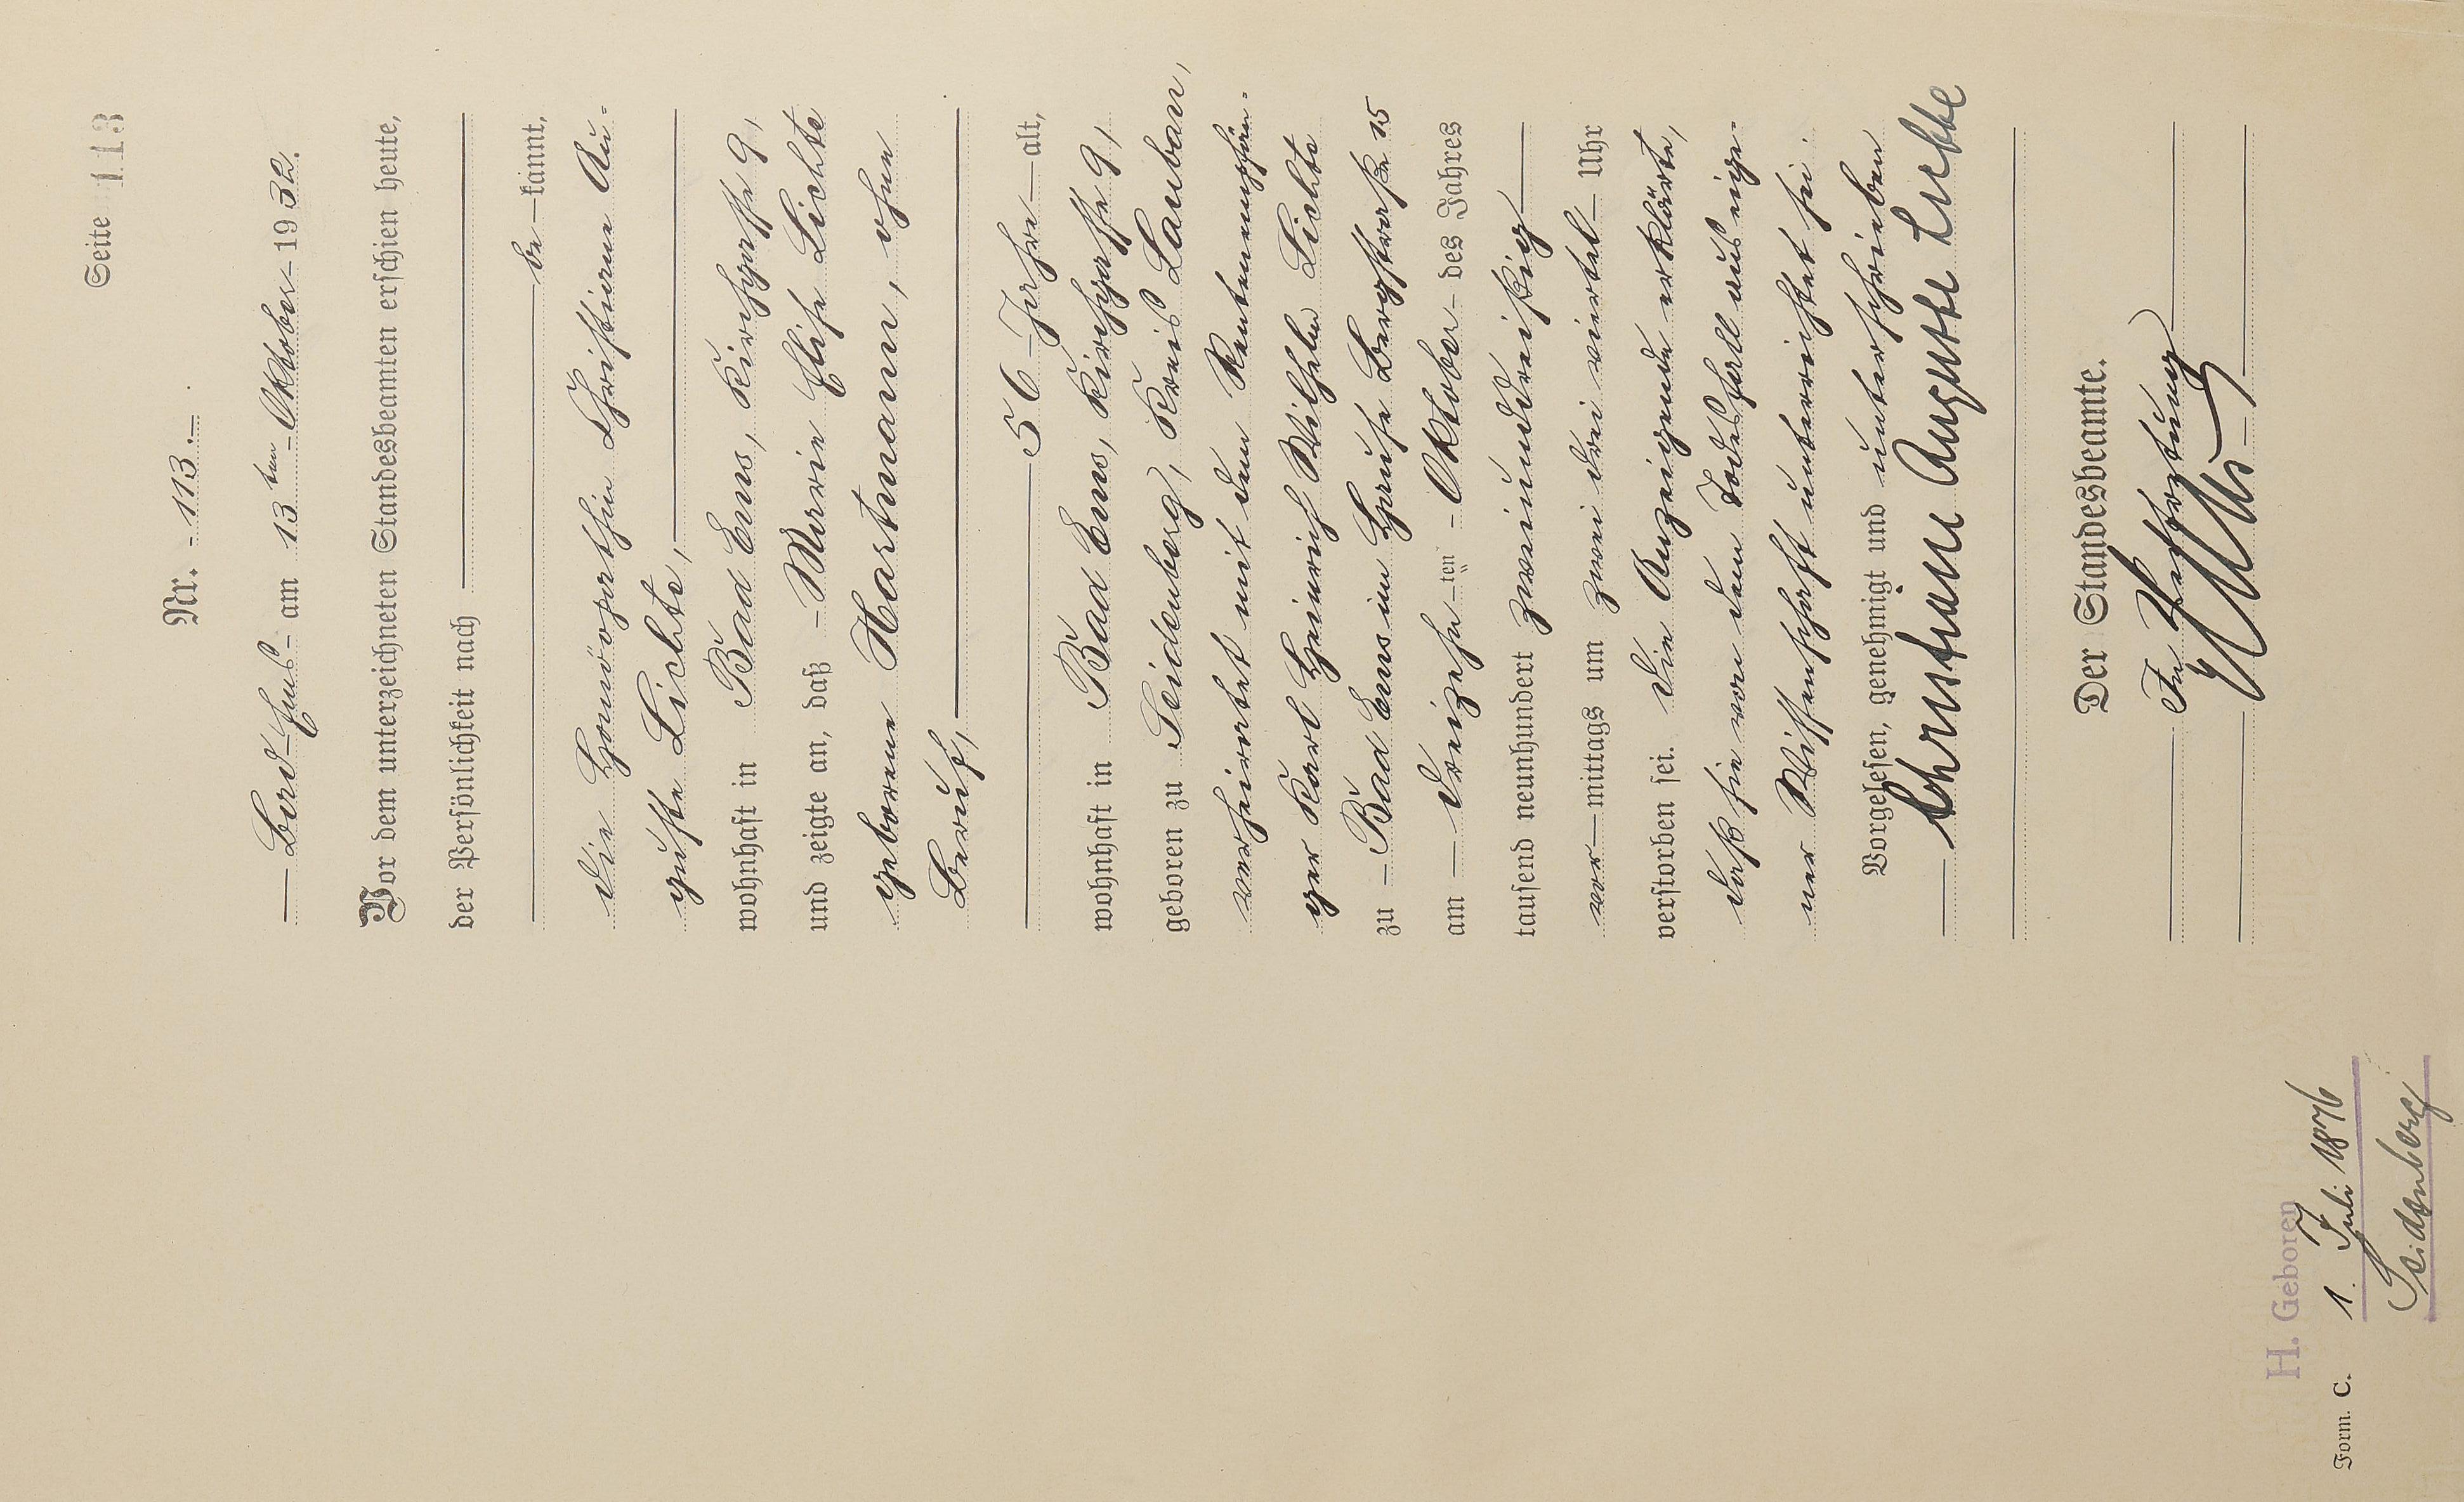 Seite 113
Nr. - 113. -
— Bad-Ems - am 13ten - Oktober - 1932.
Vor dem unterzeichneten Standesbeamten erschien heute,
der Persönlichkeit nach
be — kannt,
die Homöopathin Christiane Au-
guste Lichte,
wohnhaft in Bad Ems, Kirchgasse 9,
und zeigte an, daß - Marie Elise Lichte
geborene Hartmann, ohne
Beruf,
56 - Jahre — alt,
wohnhaft in Bad Ems, Kirchgasse 9,
geboren zu Seidenberg, Kreis Lauban,
verheiratet mit dem Rentenempfän-
ger Karl Heinrich Wilhelm Lichte
zu - Bad Ems im Hause Bergstraße 15
am — dreizehn - ten - Oktober - des Jahres
tausend neunhundert zweiunddreißig —
vor — mittags um zwei drei viertel — Uhr
verstorben sei. Die Anzeigende erklärte,
daß sie von dem Todesfall aus eige-
ner Wissenschaft unterrichtet sei.
Vorgelesen, genehmigt und unterschrieben
Christiane Auguste Lichte
Der Standesbeamte.
In Vertretung
H. Geboren
1. Juli 1876
Seidenberg
Form. C.